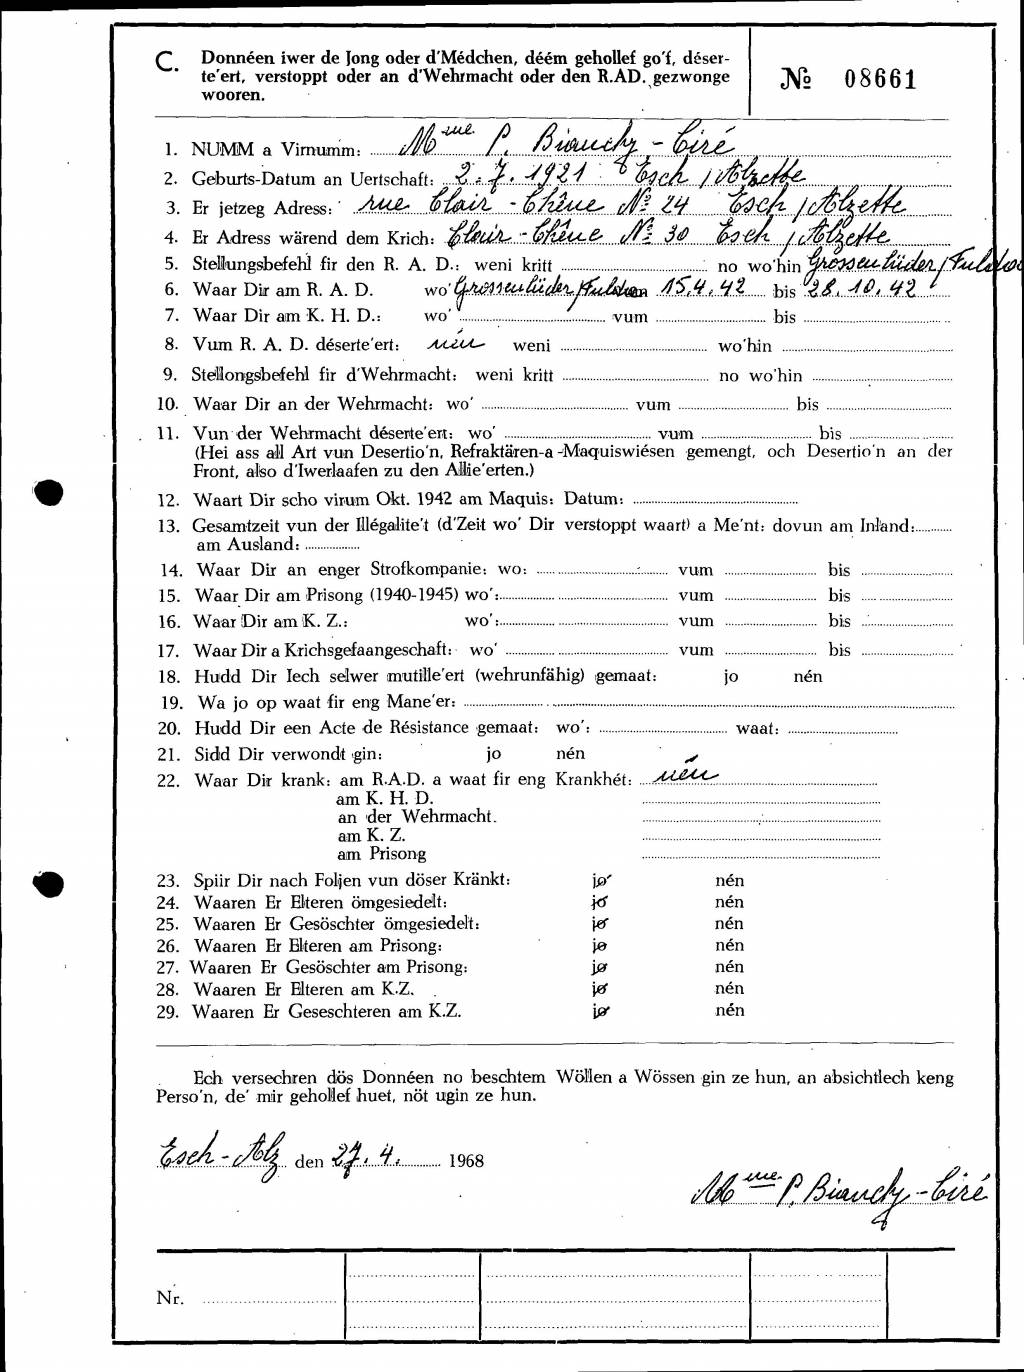 C. Donnéen iwer de Jong oder d'Médchen, déém gehollef go'f, déser-
te'ert, verstoppt oder an d'Wehrmacht oder den R.AD. gezwonge
wooren.
№ 08661
1. NUMM a Virnumm: Mme P. Bianchy - Ciré
2. Geburts-Datum an Uertschaft: 2. 7. 1921 Esch / Alzette
3. Er jetzeg Adress: rue Clair - Chêne № 24 Esch / Alzette
4. Er Adress wärend dem Krich: Clair - Chêne № 30 Esch / Alzette
5. Stellungsbefehl fir den R. A. D.: weni kritt no wo'hin Grossenlüder / Fulda
6. Waar Dir am R. A. D. wo' Grossenlüder / Fulda 15. 4. 42 bis 28. 10. 42
7. Waar Dir am K. H. D.: wo' vum bis
8. Vum R. A. D. déserte'ert: nén weni wo'hin
9. Stellongsbefehl fir d'Wehrmacht: weni kritt no wo'hin
10. Waar Dir an der Wehrmacht: wo' vum bis
11. Vun der Wehrmacht déserte'ert: wo' vum bis
(Hei ass all Art vun Desertio'n, Refraktären-a-Maquiswiésen gemengt, och Desertio'n an der
Front, also d'Iwerlaafen zu den Allie'erten.)
12. Waart Dir scho virum Okt. 1942 am Maquis: Datum:
13. Gesamtzeit vun der Illégalite't (d'Zeit wo' Dir verstoppt waart) a Me'nt: dovun am Inland:
am Ausland:
14. Waar Dir an enger Strofkompanie: wo: vum bis
15. Waar Dir am Prisong (1940-1945) wo': vum bis
16. Waar Dir am K. Z.: wo': vum bis
17. Waar Dir a Krichsgefaangeschaft: wo' vum bis
18. Hudd Dir Iech selwer mutille'ert (wehrunfähig) gemaat: jo nén
19. Wa jo op waat fir eng Mane'er:
20. Hudd Dir een Acte de Résistance gemaat: wo': waat:
21. Sidd Dir verwondt gin: jo nén
22. Waar Dir krank: am R.A.D. a waat fir eng Krankhét: nén
am K. H. D.
an der Wehrmacht.
am K. Z.
am Prisong
23. Spiir Dir nach Foljen vun döser Kränkt: jo nén
24. Waaren Er Elteren ömgesiedelt: jo nén
25. Waaren Er Gesöschter ömgesiedelt: jo nén
26. Waaren Er Elteren am Prisong: jo nén
27. Waaren Er Gesöschter am Prisong: jo nén
28. Waaren Er Elteren am K.Z. jo nén
29. Waaren Er Geseschteren am K.Z. jo nén
Ech versechren dös Donnéen no beschtem Wöllen a Wössen gin ze hun, an absichtlech keng
Perso'n, de' mir gehollef huet, nöt ugin ze hun.
Esch - Alz den 27. 4. 1968
Mme P. Bianchy - Ciré
Nr.